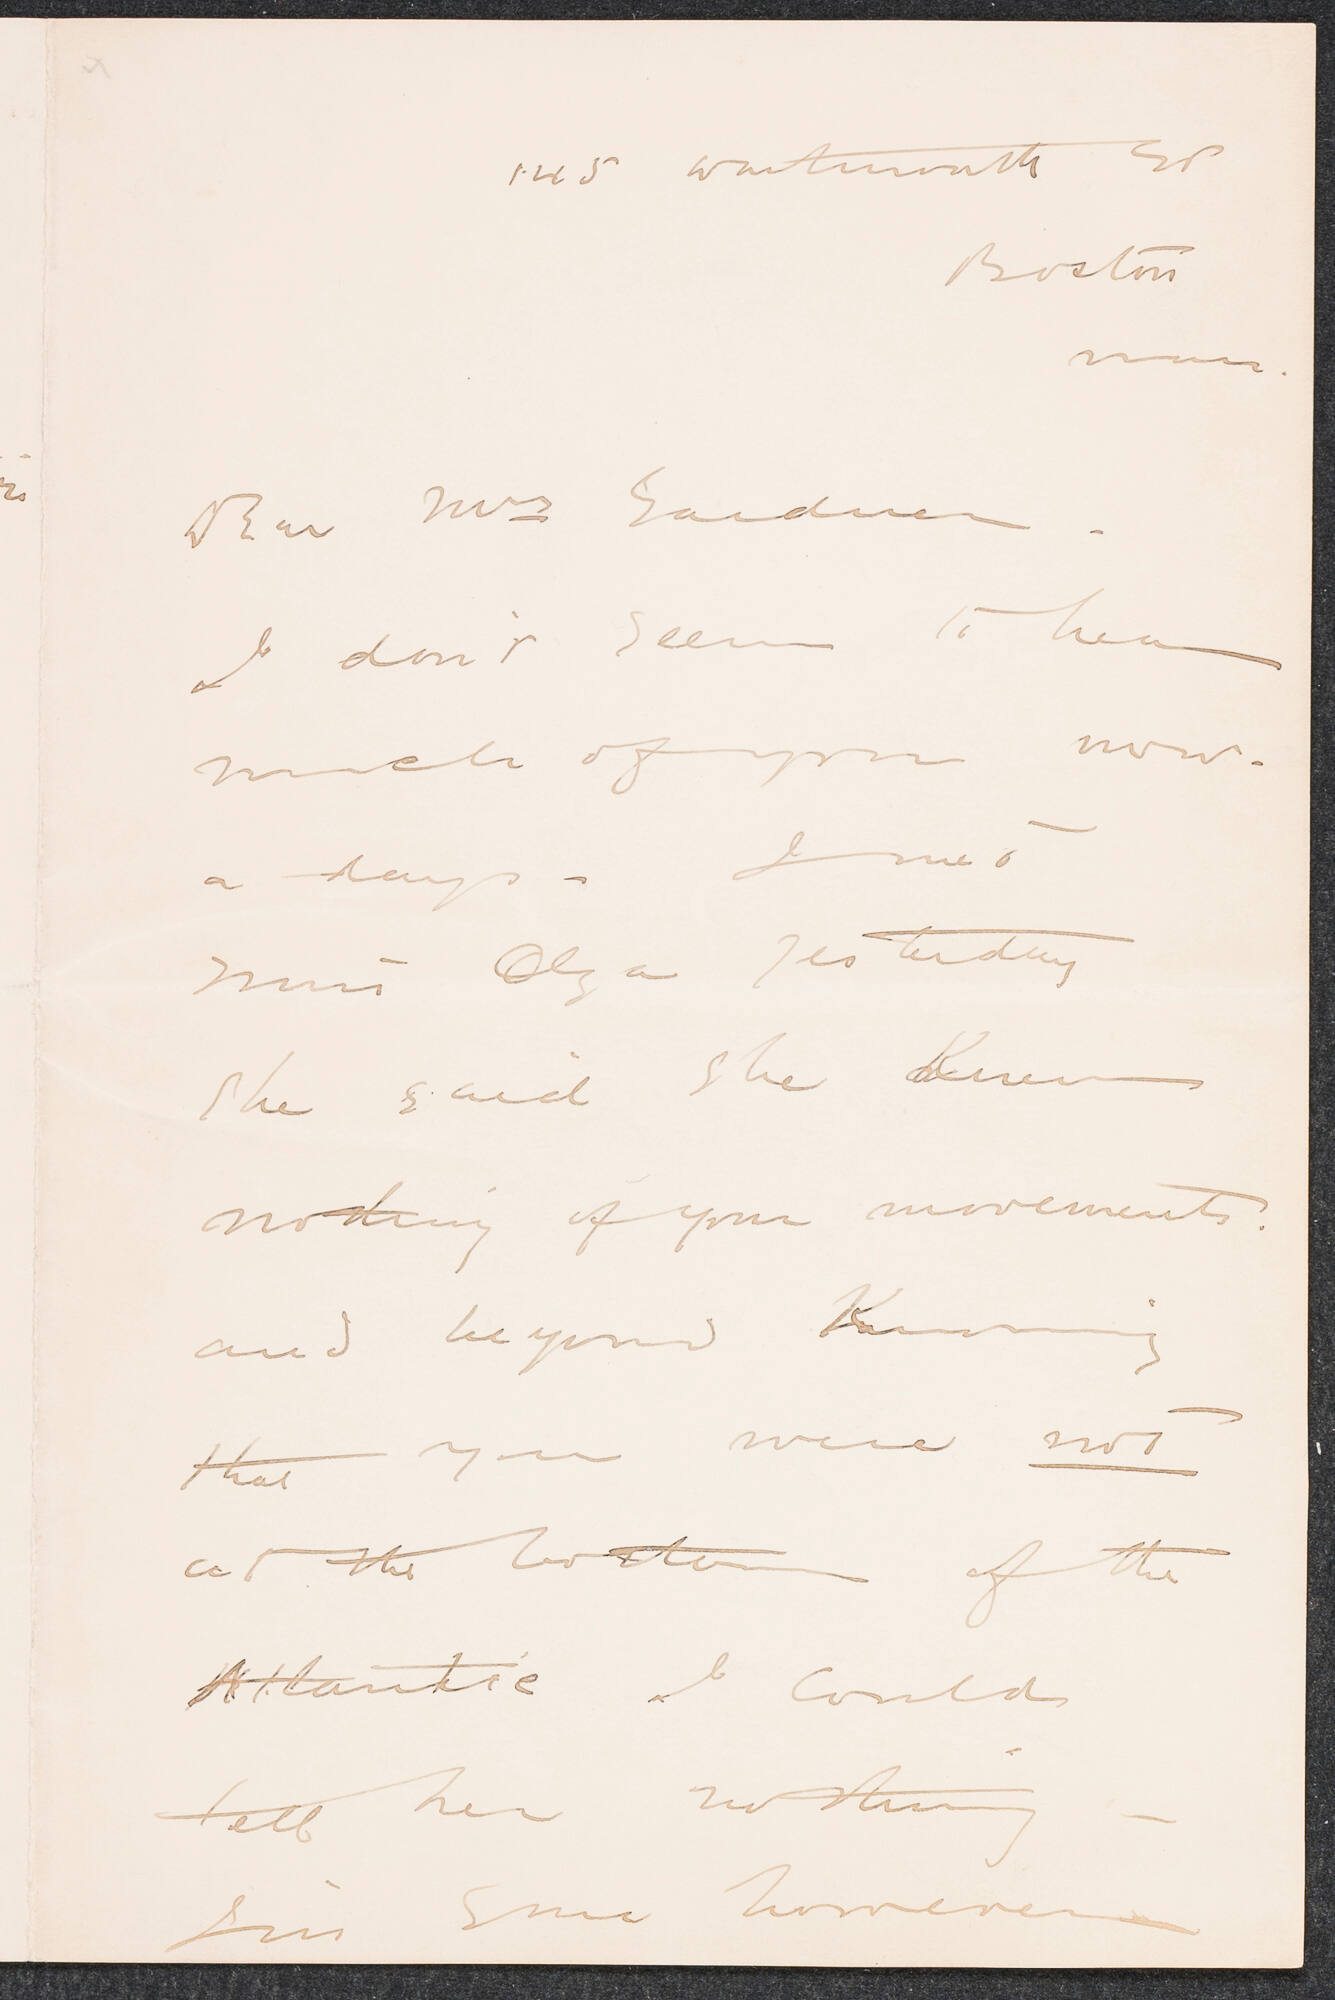 145 Wentworth St
Boston
Mass.
Dear Mrs Gardner -
I don't seem to hear
much of you now-
a days - I met
Miss Olga yesterday
She said she knew
nothing of your movements.
and beyond Knowing
that you were not
at the bottom of the
Atlantic I could
tell her nothing -
I'm sure however